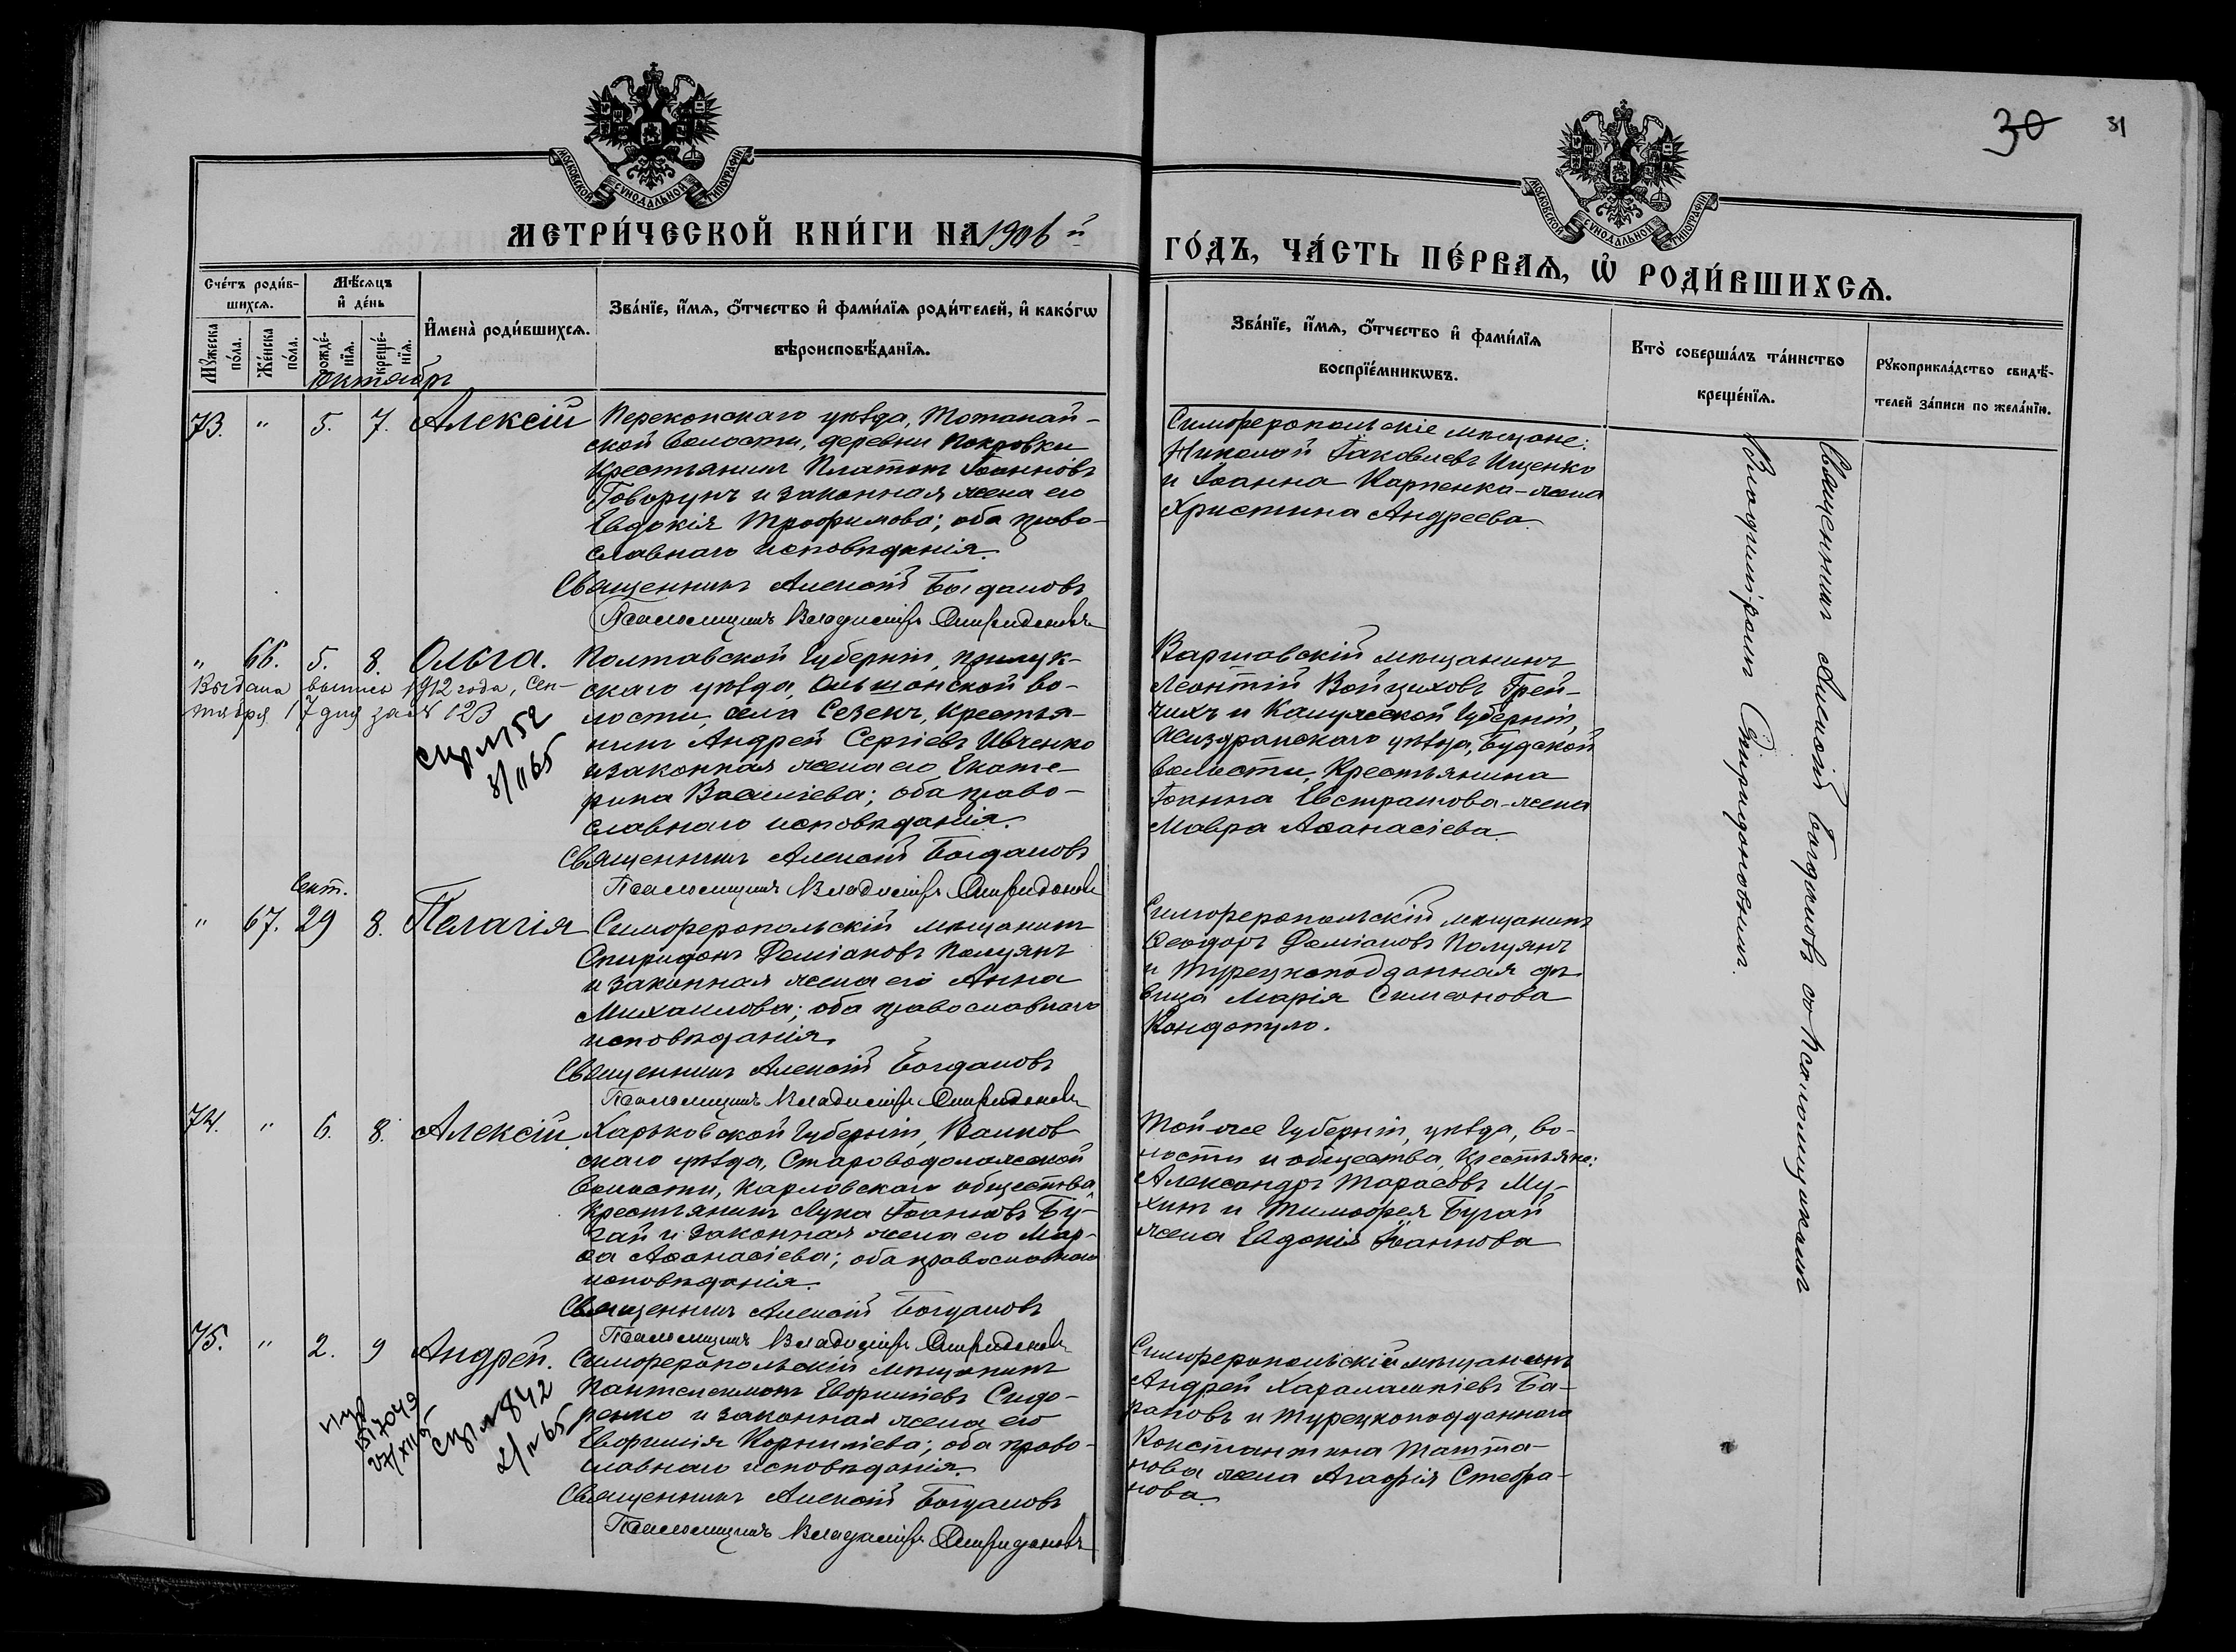 30 31
МОСКОВСКОЙ СѴНОДАЛЬНОЙ ТИПОГРАФІИ
МОСКОВСКОЙ СѴНОДАЛЬНОЙ ТИПОГРАФІИ
МЕТРИ́ЧЕСКОЙ КНИ́ГИ НА 1906 й
ГО́ДЪ, ЧА́СТЬ ПЕ́РВАѦ, Ѡ҆ РОДИ́ВШИХСѦ.
Сче́тъ роди́в-
шихсѧ.
Мꙋ́жеска по́ла.
Же́нска по́ла.
Мѣ́сѧцъ и҆ де́нь
рожде́-нїѧ.
креще́-нїѧ.
И҆мена̀ роди́вшихсѧ.
Зва́нїе, и҆́мѧ, ѻ҆́тчество и҆ фами́лїѧ роди́телей, и҆ како́гѡ
вѣроисповѣ́данїѧ.
Зва́нїе, и҆́мѧ, ѻ҆́тчество и҆ фами́лїѧ
воспрїе́мникѡвъ.
Кто̀ соверша́лъ та́инство
креще́нїѧ.
Рꙋкоприкла́дство свидѣ́-
телей за́писи по жела́нїю.
Октябрь
73. " 5. 7. Алексій
Перекопскаго уѣзда, Тотанай-
ской волости, деревни Покровки
крестьянинъ Платонъ Іоанновъ
Говорунъ и законная жена его
Евдокія Трофимова; оба право-
славнаго исповѣданія.
Священникъ Алексій Богдановъ
Псаломщикъ Владиміръ Спиридоновъ
Симферопольскіе мѣщане:
Николай Іаковлевъ Ищенко
и Іоанна Карпенка-жена
Христина Андреева.
" 66. 5. 8. Ольга.
Выдана выпись 1912 года, Сен-
тября 17 дня за № 123
спр № 152
8/II 65
Полтавской губерніи, Прилук-
скаго уѣзда, Ольшанской во-
лости, села Сезекъ, крестья-
нинъ Андрей Сергіевъ Ивченко
и законная жена его Екате-
рина Василіева; оба право-
славнаго исповѣданія.
Священникъ Алексій Богдановъ
Псаломщикъ Владиміръ Спиридоновъ
Варшавскій мѣщанинъ
Леонтій Войцеховъ Грей-
чихъ и Калужской губерніи,
Жиздранскаго уѣзда, Будской
волости, крестьянина
Іоанна Евстратова-жена
Мавра Аѳанасіева.
Сент.
" 67. 29 8. Пелагія
Симферопольскій мѣщанинъ
Спиридонъ Даміановъ Полуянъ
и законная жена его Анна
Михаилова; оба православнаго
исповѣданія.
Священникъ Алексій Богдановъ
Псаломщикъ Владиміръ Спиридоновъ
Симферопольскій мѣщанинъ
Ѳеодоръ Даміановъ Полуянъ
и турецкоподданная дѣ-
вица Марія Симеонова
Кондопуло.
74. " 6. 8. Алексій
Харьковской губерніи, Валков-
скаго уѣзда, Староводолажской
волости, Карловскаго общества,
крестьянинъ Лука Іоанновъ Бу-
гай и законная жена его Мар-
ѳа Аѳанасіева; оба православнаго
исповѣданія.
Священникъ Алексій Богдановъ
Псаломщикъ Владиміръ Спиридоновъ
Той-же губерніи, уѣзда, во-
лости и общества, крестьяне:
Александръ Тарасовъ Му-
хинъ и Тимофея Бугай
жена Евдокія Іоаннова
75. " 2. 9 Андрей.
спр № 842
2/IV 65
Симферопольскій мѣщанинъ
Пантелеимонъ Евфиміевъ Сидо-
ренко и законная жена его
Евфимія Корниліева; оба право-
славнаго исповѣданія.
Священникъ Алексій Богдановъ
Псаломщикъ Владиміръ Спиридоновъ
Симферопольскій мѣщанинъ
Андрей Харалампіевъ Ба-
рановъ и турецкоподданнаго
Константина Татта-
нова жена Агафія Стефа-
нова.
Священникъ Алексій Богдановъ со псаломщикомъ
Владиміромъ Спиридоновымъ.